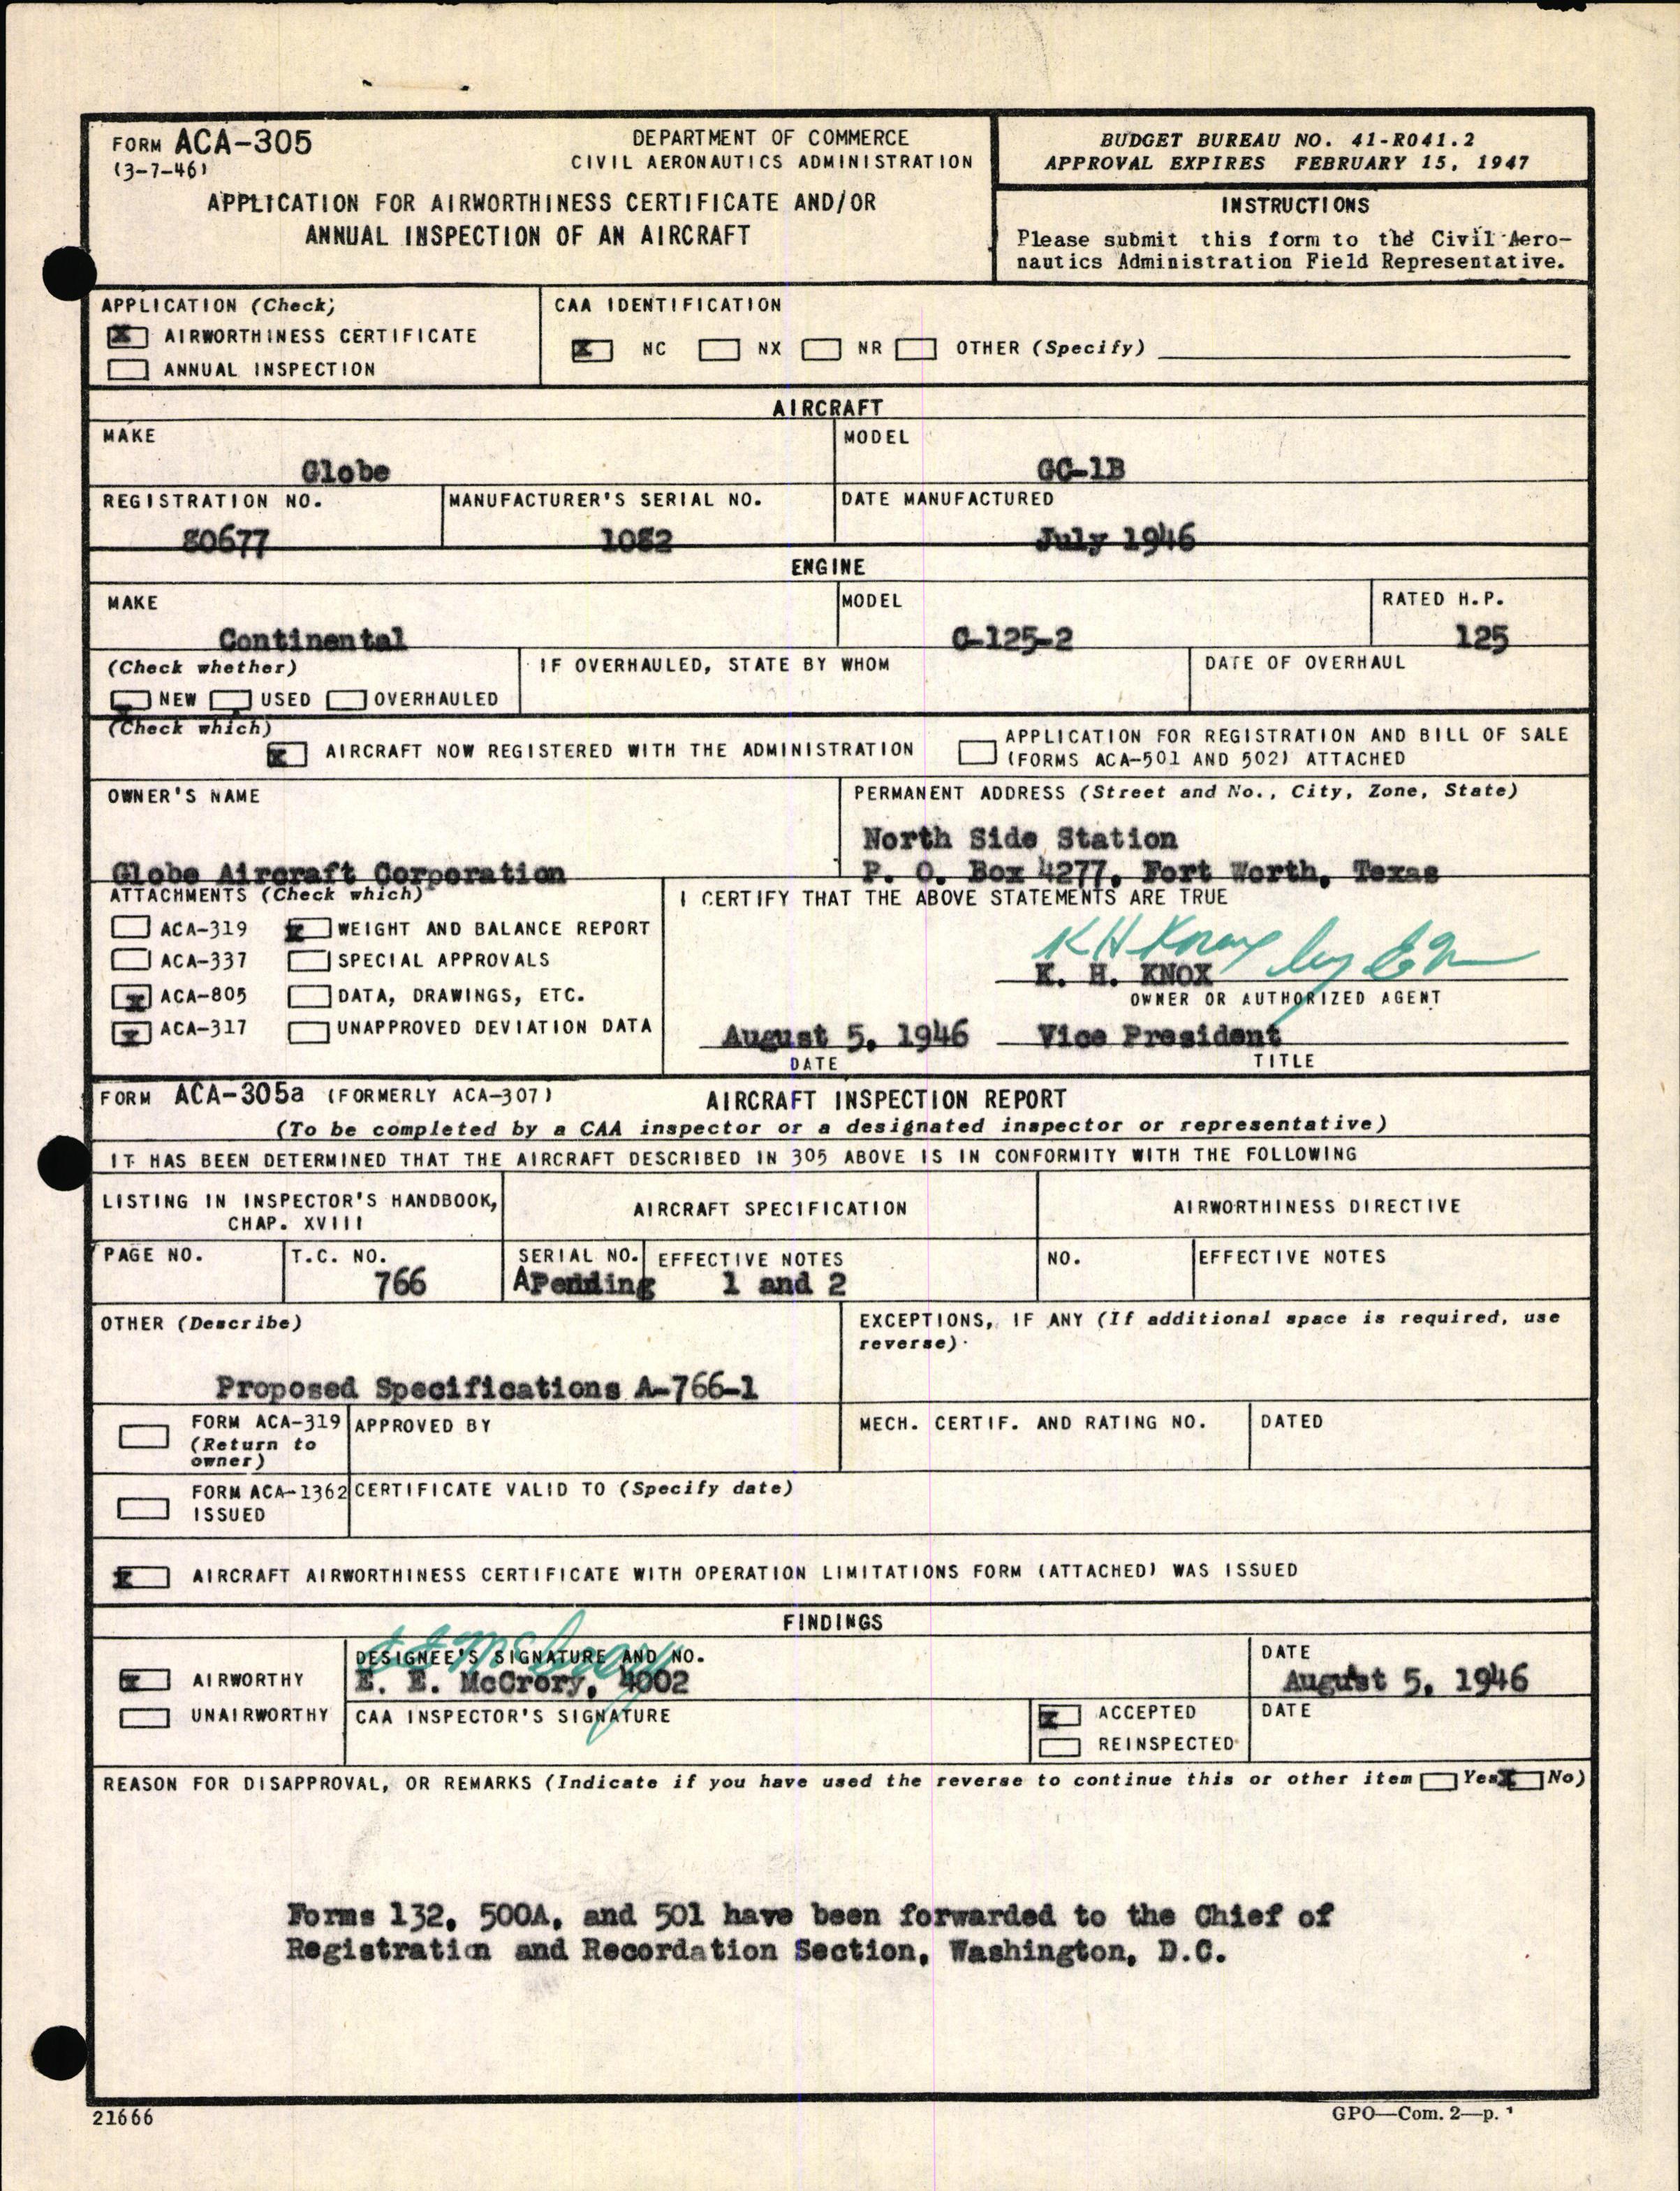 FORM ACA-305
(3-7-46)
DEPARTMENT OF COMMERCE
CIVIL AERONAUTICS ADMINISTRATION
APPLICATION FOR AIRWORTHINESS CERTIFICATE AND/OR
ANNUAL INSPECTION OF AN AIRCRAFT
BUDGET BUREAU NO. 41-R041.2
APPROVAL EXPIRES FEBRUARY 15, 1947
INSTRUCTIONS
Please submit this form to the Civil Aero-
nautics Administration Field Representative.
APPLICATION (Check)
X AIRWORTHINESS CERTIFICATE
ANNUAL INSPECTION
CAA IDENTIFICATION
X NC NX NR OTHER (Specify)
AIRCRAFT
MAKE
Globe
MODEL
GC-1B
REGISTRATION NO.
80677
MANUFACTURER'S SERIAL NO.
1082
DATE MANUFACTURED
July 1946
ENGINE
MAKE
Continental
MODEL
C-125-2
RATED H.P.
125
(Check whether)
NEW USED OVERHAULED
IF OVERHAULED, STATE BY WHOM
DATE OF OVERHAUL
(Check which)
X AIRCRAFT NOW REGISTERED WITH THE ADMINISTRATION
APPLICATION FOR REGISTRATION AND BILL OF SALE
(FORMS ACA-501 AND 502) ATTACHED
OWNER'S NAME
Globe Aircraft Corporation
PERMANENT ADDRESS (Street and No., City, Zone, State)
North Side Station
P. O. Box 4277, Fort Worth, Texas
ATTACHMENTS (Check which)
ACA-319 X WEIGHT AND BALANCE REPORT
ACA-337 SPECIAL APPROVALS
X ACA-805 DATA, DRAWINGS, ETC.
X ACA-317 UNAPPROVED DEVIATION DATA
I CERTIFY THAT THE ABOVE STATEMENTS ARE TRUE
K H Knox by
K. H. KNOX
OWNER OR AUTHORIZED AGENT
August 5, 1946 Vice President
DATE TITLE
FORM ACA-305a (FORMERLY ACA-307) AIRCRAFT INSPECTION REPORT
(To be completed by a CAA inspector or a designated inspector or representative)
IT HAS BEEN DETERMINED THAT THE AIRCRAFT DESCRIBED IN 305 ABOVE IS IN CONFORMITY WITH THE FOLLOWING
LISTING IN INSPECTOR'S HANDBOOK,
CHAP. XVIII
AIRCRAFT SPECIFICATION
AIRWORTHINESS DIRECTIVE
PAGE NO.
T.C. NO.
766
SERIAL NO.
APending
EFFECTIVE NOTES
1 and 2
NO.
EFFECTIVE NOTES
OTHER (Describe)
Proposed Specifications A-766-1
EXCEPTIONS, IF ANY (If additional space is required, use
reverse).
FORM ACA-319
(Return to
owner)
APPROVED BY
MECH. CERTIF. AND RATING NO.
DATED
FORM ACA-1362
ISSUED
CERTIFICATE VALID TO (Specify date)
X AIRCRAFT AIRWORTHINESS CERTIFICATE WITH OPERATION LIMITATIONS FORM (ATTACHED) WAS ISSUED
FINDINGS
X AIRWORTHY
UNAIRWORTHY
E E McCrory
DESIGNEE'S SIGNATURE AND NO.
E. E. McCrory, 4002
DATE
August 5, 1946
CAA INSPECTOR'S SIGNATURE
X ACCEPTED
REINSPECTED
DATE
REASON FOR DISAPPROVAL, OR REMARKS (Indicate if you have used the reverse to continue this or other item Yes X No)
Forms 132, 500A, and 501 have been forwarded to the Chief of
Registration and Recordation Section, Washington, D.C.
21666
GPO—Com. 2—p. 1